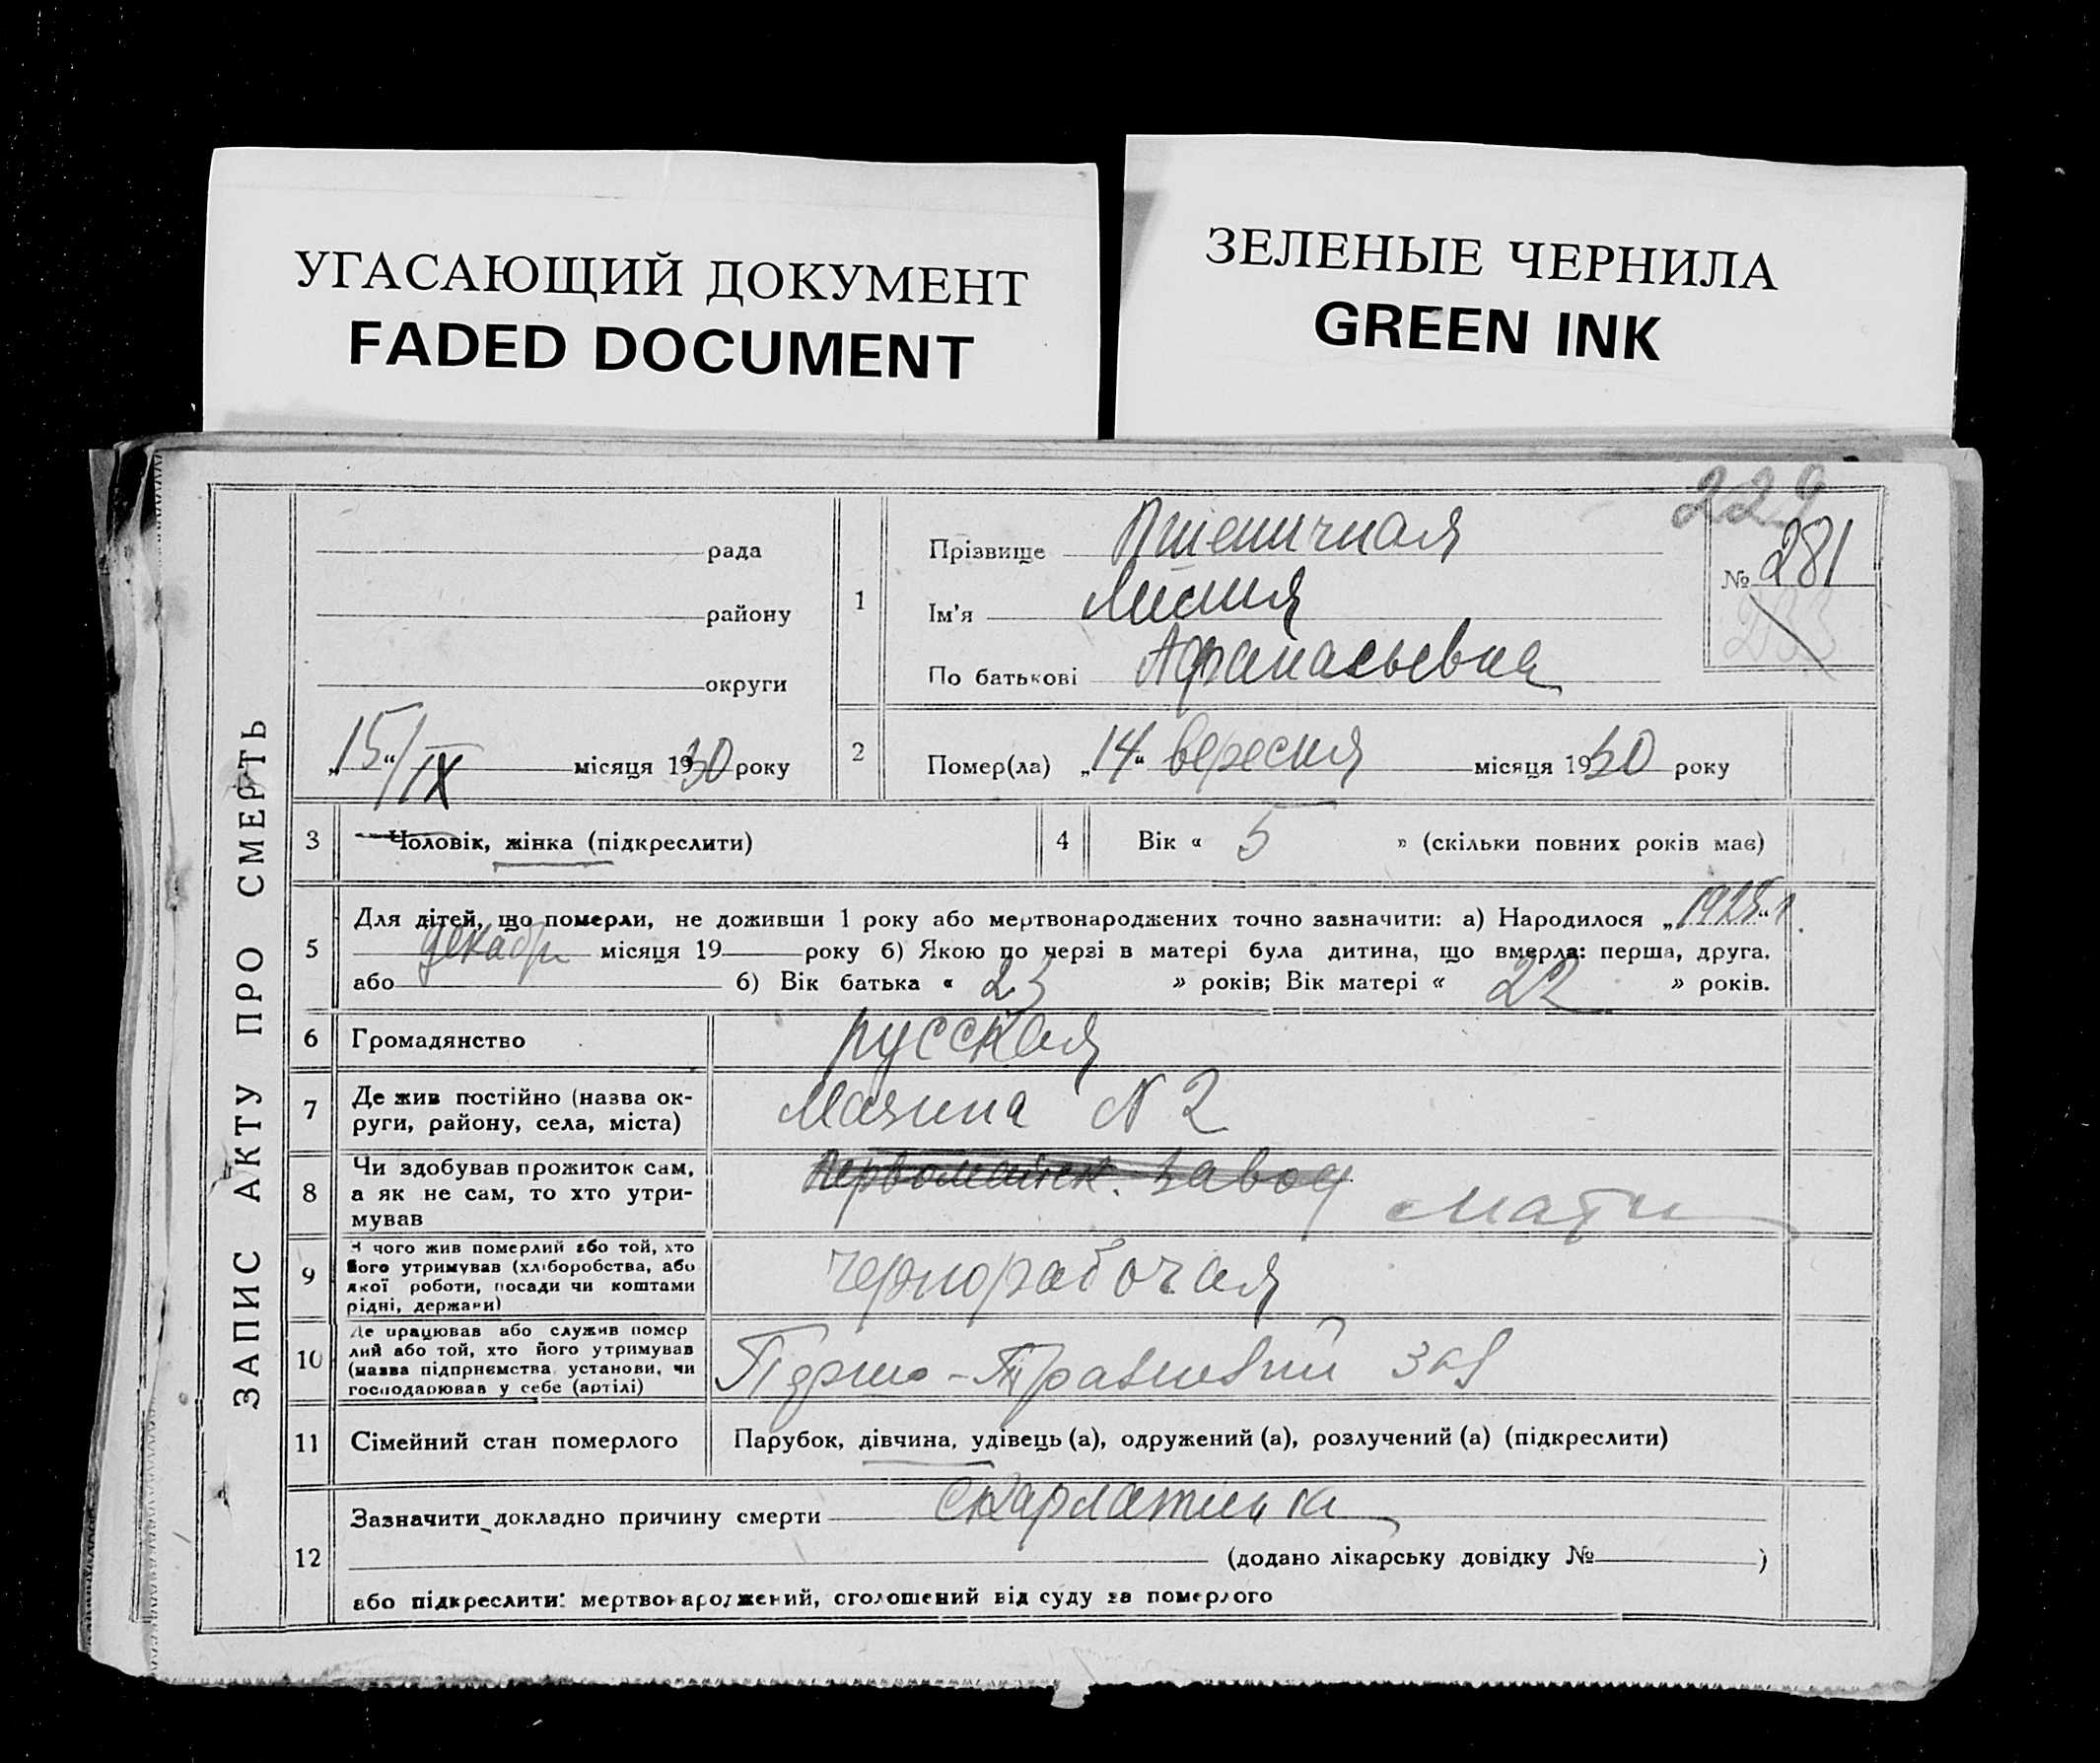 УГАСАЮЩИЙ ДОКУМЕНТ
FADED DOCUMENT
ЗЕЛЕНЫЕ ЧЕРНИЛА
GREEN INK
229
№ 281
ЗАПИС АКТУ ПРО СМЕРТЬ
рада
району
округи
„15“/IX місяця 1930 року
1
Прізвище Пшеничная
Ім'я
По батькові Афанасьевна
2 Помер(ла) „14“ вересня місяця 1930 року
3 Чоловік, жінка (підкреслити)
4 Вік « 5 » (скільки повних років має)
5 Для дітей, що померли, не доживши 1 року або мертвонароджених точно зазначити: а) Народилося „1925“
декабр місяця 19 року б) Якою по черзі в матері була дитина, що вмерла: перша, друга.
або б) Вік батька « 23 » років; Вік матері « 22 » років.
6 Громадянство русская
7 Де жив постійно (назва ок-
руги, району, села, міста)
N 2
8 Чи здобував прожиток сам,
а як не сам, то хто утри-
мував
Первомайск. завод мати
9 З чого жив померлий або той, хто
його утримував (хліборобства, або
якої роботи, посади чи коштами
рідні, держави)
чернорабочая
10 Де працював або служив помер
лий або той, хто його утримував
(назва підприємства, установи, чи
господарював у себе (артілі)
зав
11 Сімейний стан померлого Парубок, дівчина, удівець (а), одружений (а), розлучений (а) (підкреслити)
12 Зазначити докладно причину смерти скарлатина
(додано лікарську довідку № )
або підкреслити: мертвонароджений, оголошений від суду за померлого